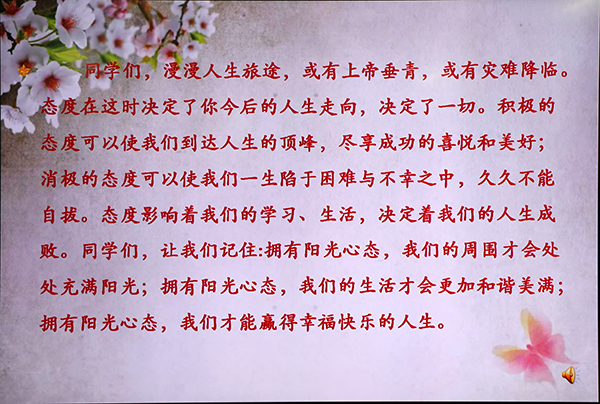 同学们，漫漫人生旅途，或有上帝垂青，或有灾难降临。
态度在这时决定了你今后的人生走向，决定了一切。积极的
态度可以使我们到达人生的顶峰，尽享成功的喜悦和美好；
消极的态度可以使我们一生陷于困难与不幸之中，久久不能
自拔。态度影响着我们的学习、生活，决定着我们的人生成
败。同学们，让我们记住:拥有阳光心态，我们的周围才会处
处充满阳光；拥有阳光心态，我们的生活才会更加和谐美满；
拥有阳光心态，我们才能赢得幸福快乐的人生。